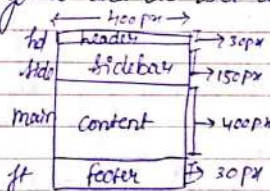 400px
hd header 30px
side sidebar 150px
main content 400px
ft footer 30px